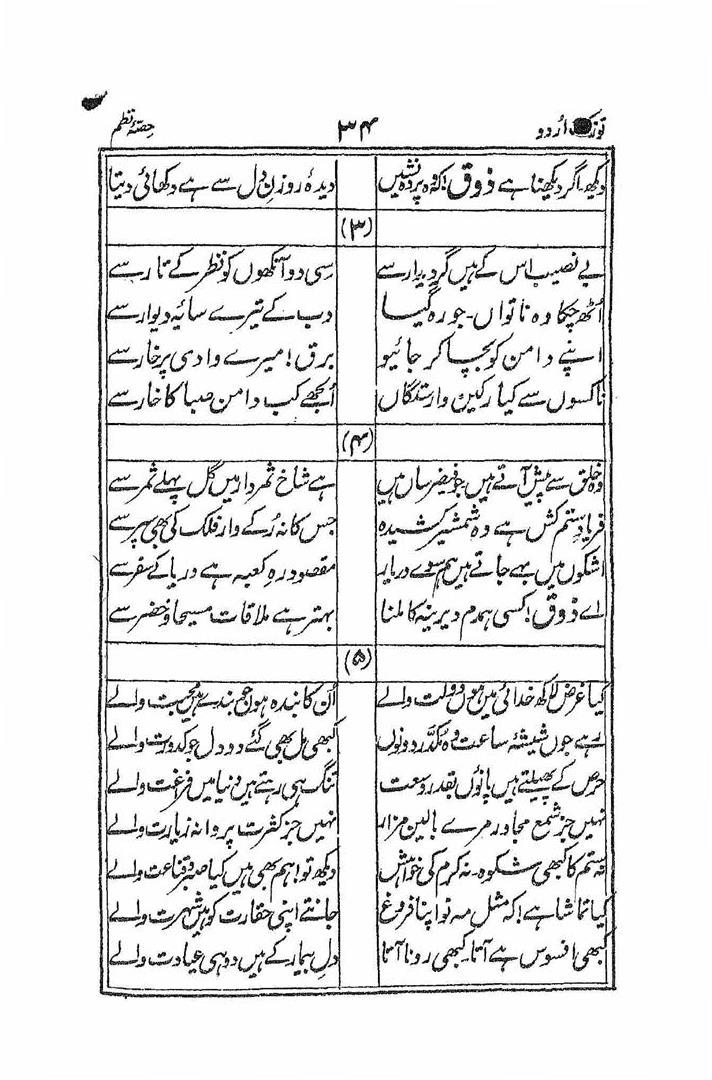 توزک اُردو ۳۴ حصّہ نظم
دیکھ۔ اگر دیکھنا ہے ذوق! کہ وہ پردہ نشیں دیدہ روزنِ دل سے ہے دکھائی دیتا
(۳)
بے نصیب اس کے ہیں گر دیدار سے سی دو آنکھوں کو نظر کے تار سے
اُٹھ چکا وہ ناتواں۔ جو رہ گیا دب کے تیرے سایہ دیوار سے
اپنے دامن کو بچا کر جائیو برق! میرے وادیِ پرخار سے
ناکسوں سے کیا رکیں وارستگاں اُلجھے کب دامن صبا کا خار سے
(۴)
وہ خلق سے پیش آتے ہیں جو فیض رساں ہیں ہے شاخ ثمردار میں گل پہلے ثمر سے
فریاد ستم کش ہے وہ شمشیر کشیدہ جس کا نہ رُکے وار فلک کی بھی سپر سے
اشکوں میں بہے جاتے ہیں ہم سوے دریار مقصود رہِ کعبہ ہے دریا کے سفر سے
اے ذوق! کسی ہمدم دیرینہ کا ملنا بہتر ہے ملاقات مسیحا و خضر سے
(۵)
کیا غرض لاکھ خدائی میں ہوں دولت والے اُن کا بندہ ہوں جو بندے ہیں محبت والے
رہے جوں شیشۂ ساعت وہ مکدّر دونوں کبھی مل بھی گئے دو دل جو کدورت والے
حرص کے پھیلتے ہیں پانؤں بقدر وسعت تنگ ہی رہتے ہیں دنیا میں فرغت والے
نہیں جز شمع مجاور مرے بالین مزار نہیں جز کثرت پروانہ زیارت والے
نہ ستم کا کبھی شکوہ۔ نہ کرم کی خواہش دیکھ تو! ہم بھی ہیں کیا صبر و قناعت والے
کیا تماشا ہے! کہ مثل مہ نو اپنا فروغ جانتے اپنی حقارت کو ہیں شہرت والے
کبھی افسوس ہے آتا۔ کبھی رونا آتا دل بیمار کے ہیں دو ہی عیادت والے